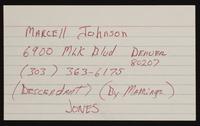 MARCELL JOHNSON
6900 MLK Blvd DENVER
80207
(303) 363-6175
(DESCENDANT) (By MARRIAGE)
JONES